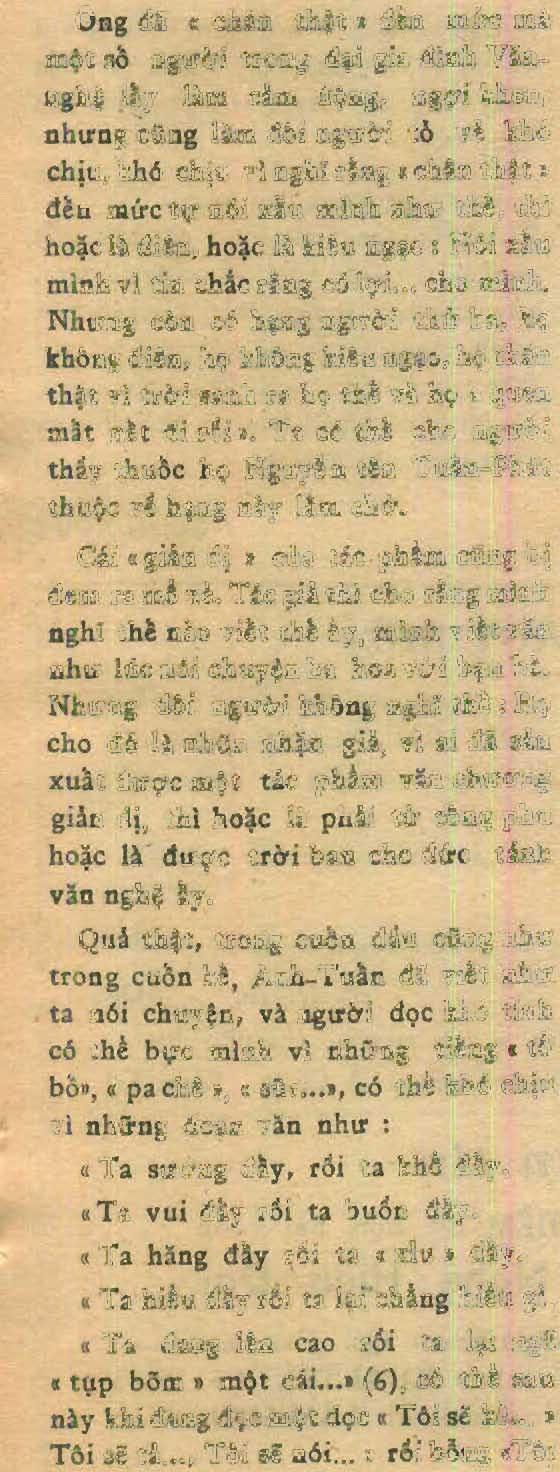 Ông đã « chân thật » đến mức mà
một số người trong đại gia đình Văn-
nghệ lấy làm cảm động, ngợi khen,
nhưng cũng làm đôi người tỏ vẻ khó
chịu, khó chịu vì nghĩ rằng « chân thật »
đến mức tự nói xấu mình như thế, thì
hoặc là điên, hoặc là kiêu ngạo : Nói xấu
mình vì tin chắc rằng có lợi... cho mình.
Nhưng còn có hạng người thứ ba, họ
không điên, họ không kiêu ngạo, họ chân
thật vì trời sanh ra họ thế và họ « quen
mất nết đi rồi ». Ta có thể cho người
thầy thuốc họ Nguyễn tên Tuấn-Phát
thuộc về hạng này làm chớ.
Cái « giản dị » của tác phẩm cũng bị
đem ra mổ xẻ. Tác giả thì cho rằng mình
nghĩ thế nào viết thế ấy, mình viết văn
như lúc nói chuyện ba hoa với bạn bè.
Nhưng đôi người không nghĩ thế : Họ
cho đó là nhũn nhặn giả, vì ai đã sản
xuất được một tác phẩm văn chương
giản dị, thì hoặc là phải từ công phu
hoặc là được trời ban cho đức tánh
văn nghệ ấy.
Quả thật, trong cuốn đầu cũng như
trong cuốn kế, Anh-Tuấn đã viết như
ta nói chuyện, và người đọc khó tính
có thể bực mình vì những tiếng « tổ
bố», « pa chê », « sữ...», có thể khó chịu
vì những đoạn văn như :
« Ta sướng đấy, rồi ta khổ đấy.
« Ta vui đấy rồi ta buồn đấy.
« Ta hăng đấy rồi ta « xìu » đấy.
« Ta hiểu đấy rồi ta lại chẳng hiểu gì.
« Ta đang lên cao rồi ta lại ngã
« tụp bõm » một cái...» (6), có thể sau
này khi đang đọc một dọc « Tôi sẽ kể... »
Tôi sẽ tả..., Tôi sẽ nói... » rồi bỗng «Tôi